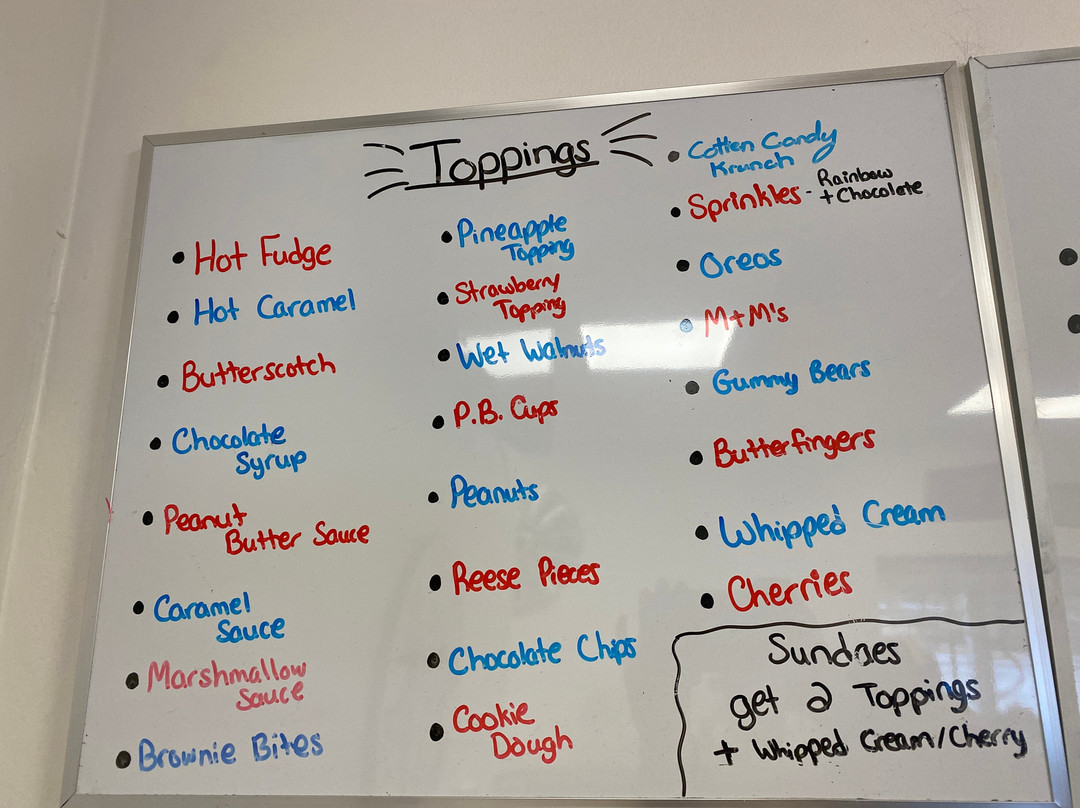 Toppings
• Hot Fudge
• Hot Caramel
• Butterscotch
• Chocolate
Syrup
• Peanut
Butter Sauce
• Caramel
Sauce
• Marshmallow
Sauce
• Brownie Bites
• Pineapple
Topping
• Strawberry
Topping
• Wet Walnuts
• P.B. Cups
• Peanuts
• Reese Pieces
• Chocolate Chips
• Cookie
Dough
• Cotten Candy
Krunch
• Sprinkles - Rainbow
+ Chocolate
• Oreos
• M+M's
• Gummy Bears
• Butterfingers
• Whipped Cream
• Cherries
Sundaes
get 2 Toppings
+ Whipped Cream/Cherry